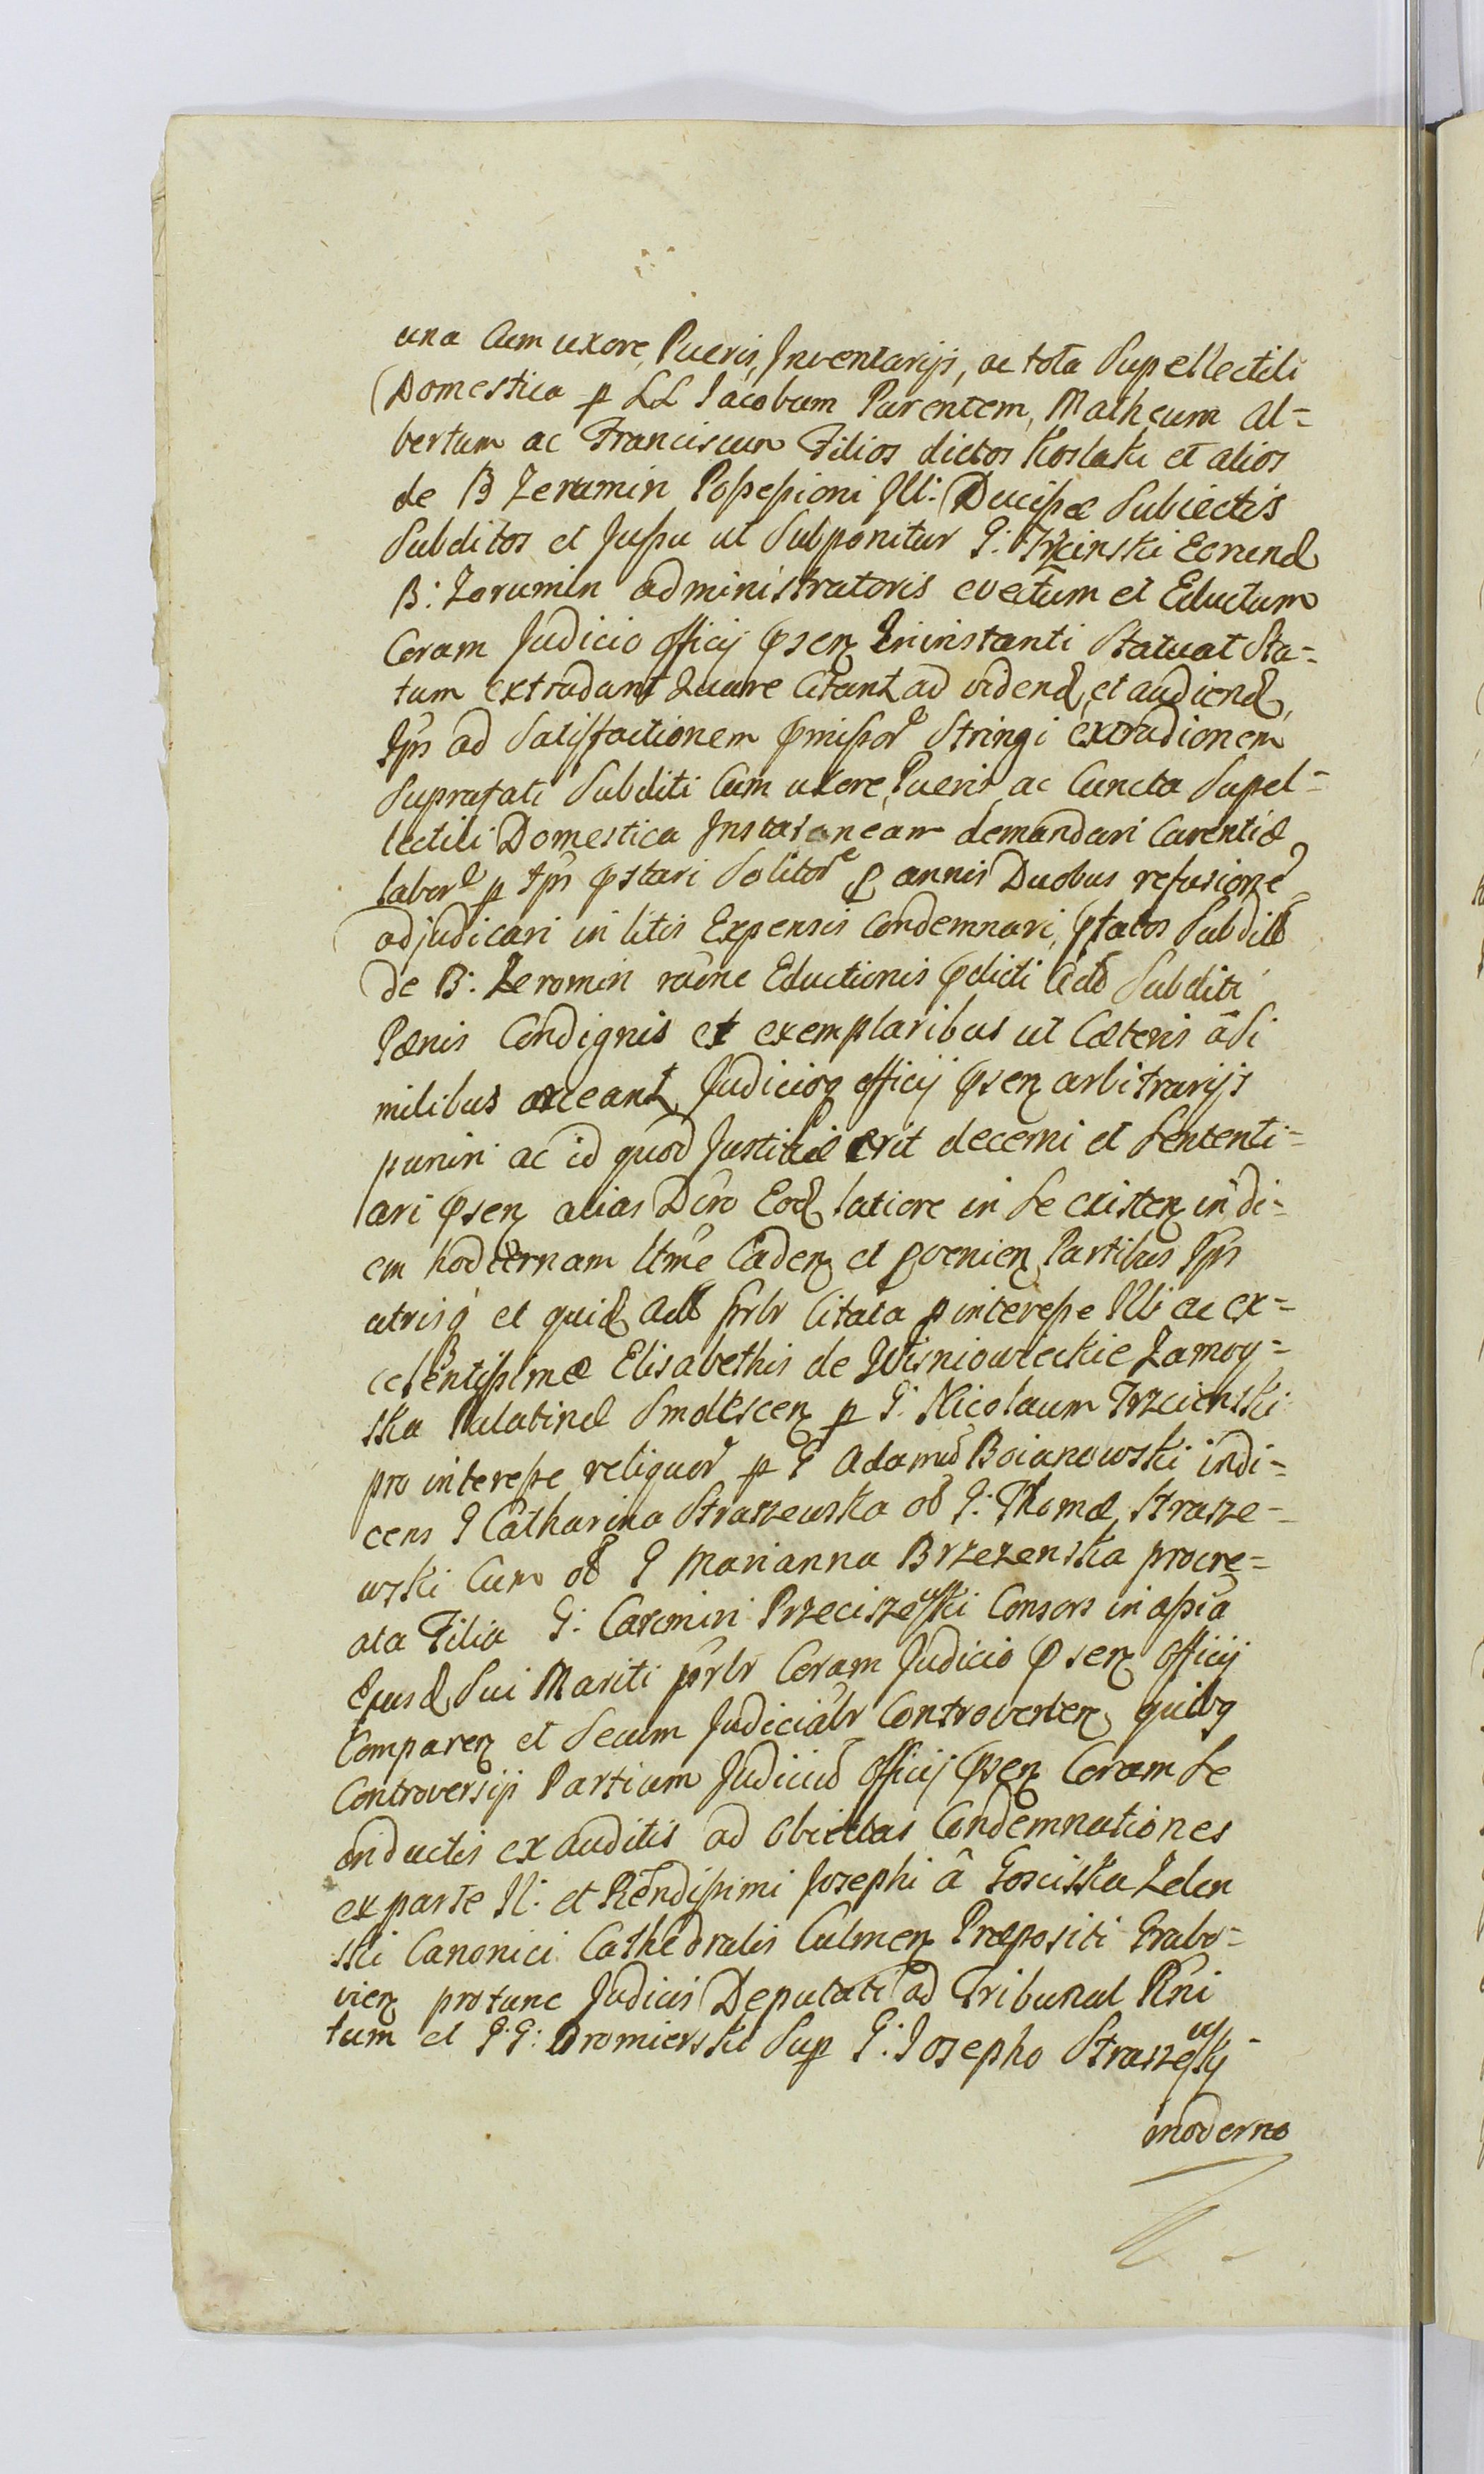 una Cum uxore, Pueris, Inventarijs, ac tota Supellectili
Domestica p LL Jacobum Parentem, Matheum Al=
bertum ac Franciscum Filios dictos Koslaki et alios
de B Zeromin Possessioni Ill: Ducissæ Subiectis
Subditos et Jussu ut Subponitur G: Trzcinski Eorund
B: Zeromin administratoris evectum et Eductum
Coram Judicio Officij psen In instanti Statuat Sta=
tum extradant Quare Citant ad vidend, et audiend,
Ipos ad Satisfactionem pmissor Stringi extradionem
Suprafati Subditi Cum uxore, Pueris ac Cuncta Supel=
lectili Domestica Instataneam demandari Carentiæ
labor p Ipos pstari Solitor p annis Duobus refusione
adjudicari in litis Expensis Condemnari, pfatos Subdit
de B: Zeromin raone Eductionis pdicti Act Subditi
Pænis Condignis et exemplaribus ut Cæteris asi
milibus arceant, Judicioq officij psen arbitrarijs
puniri ac id quod Justitiæ erit decerni et Sententi=
ari psen alias Dcro Eod latiore in Se existen in di=
em hodiernam Ltme Caden et pvenien Partibus Ipis
utrisq et quid Act prlr Citata p interesse Illi ac ex=
cellentissimæ Elisabethis de Wisniowieckie Zamoy=
ska Palatinæ Smolescen p G: Nicolaum Trzcienski
pro interesse reliquor p G Adamu Boianowski indi=
cens G Catharina Straszewska ol G: Thomæ Strasze=
wski Cum ol G Marianna Brzezenska procre=
ata Filia G: Casimiri Przeciszewski Consors in assia
Ejusd Sui Mariti prlr Coram Judicio psen Officij
Comparen et Secum Judicialr Controverten, quibq
Controversijs Partium Judiciu Officij psen Coram Se
inductis exauditis ad Obiectas Condemnationes
ex parte Il: et Rendissimi Josephi â Gosciska Zelen
ski Canonici Cathedralis Culmen Præpositi Grabo=
vien protunc Judicis Deputati ad Tribunal Rni
tum et G G: Dromierski Sup G: Josepho Straszewskj
moderno